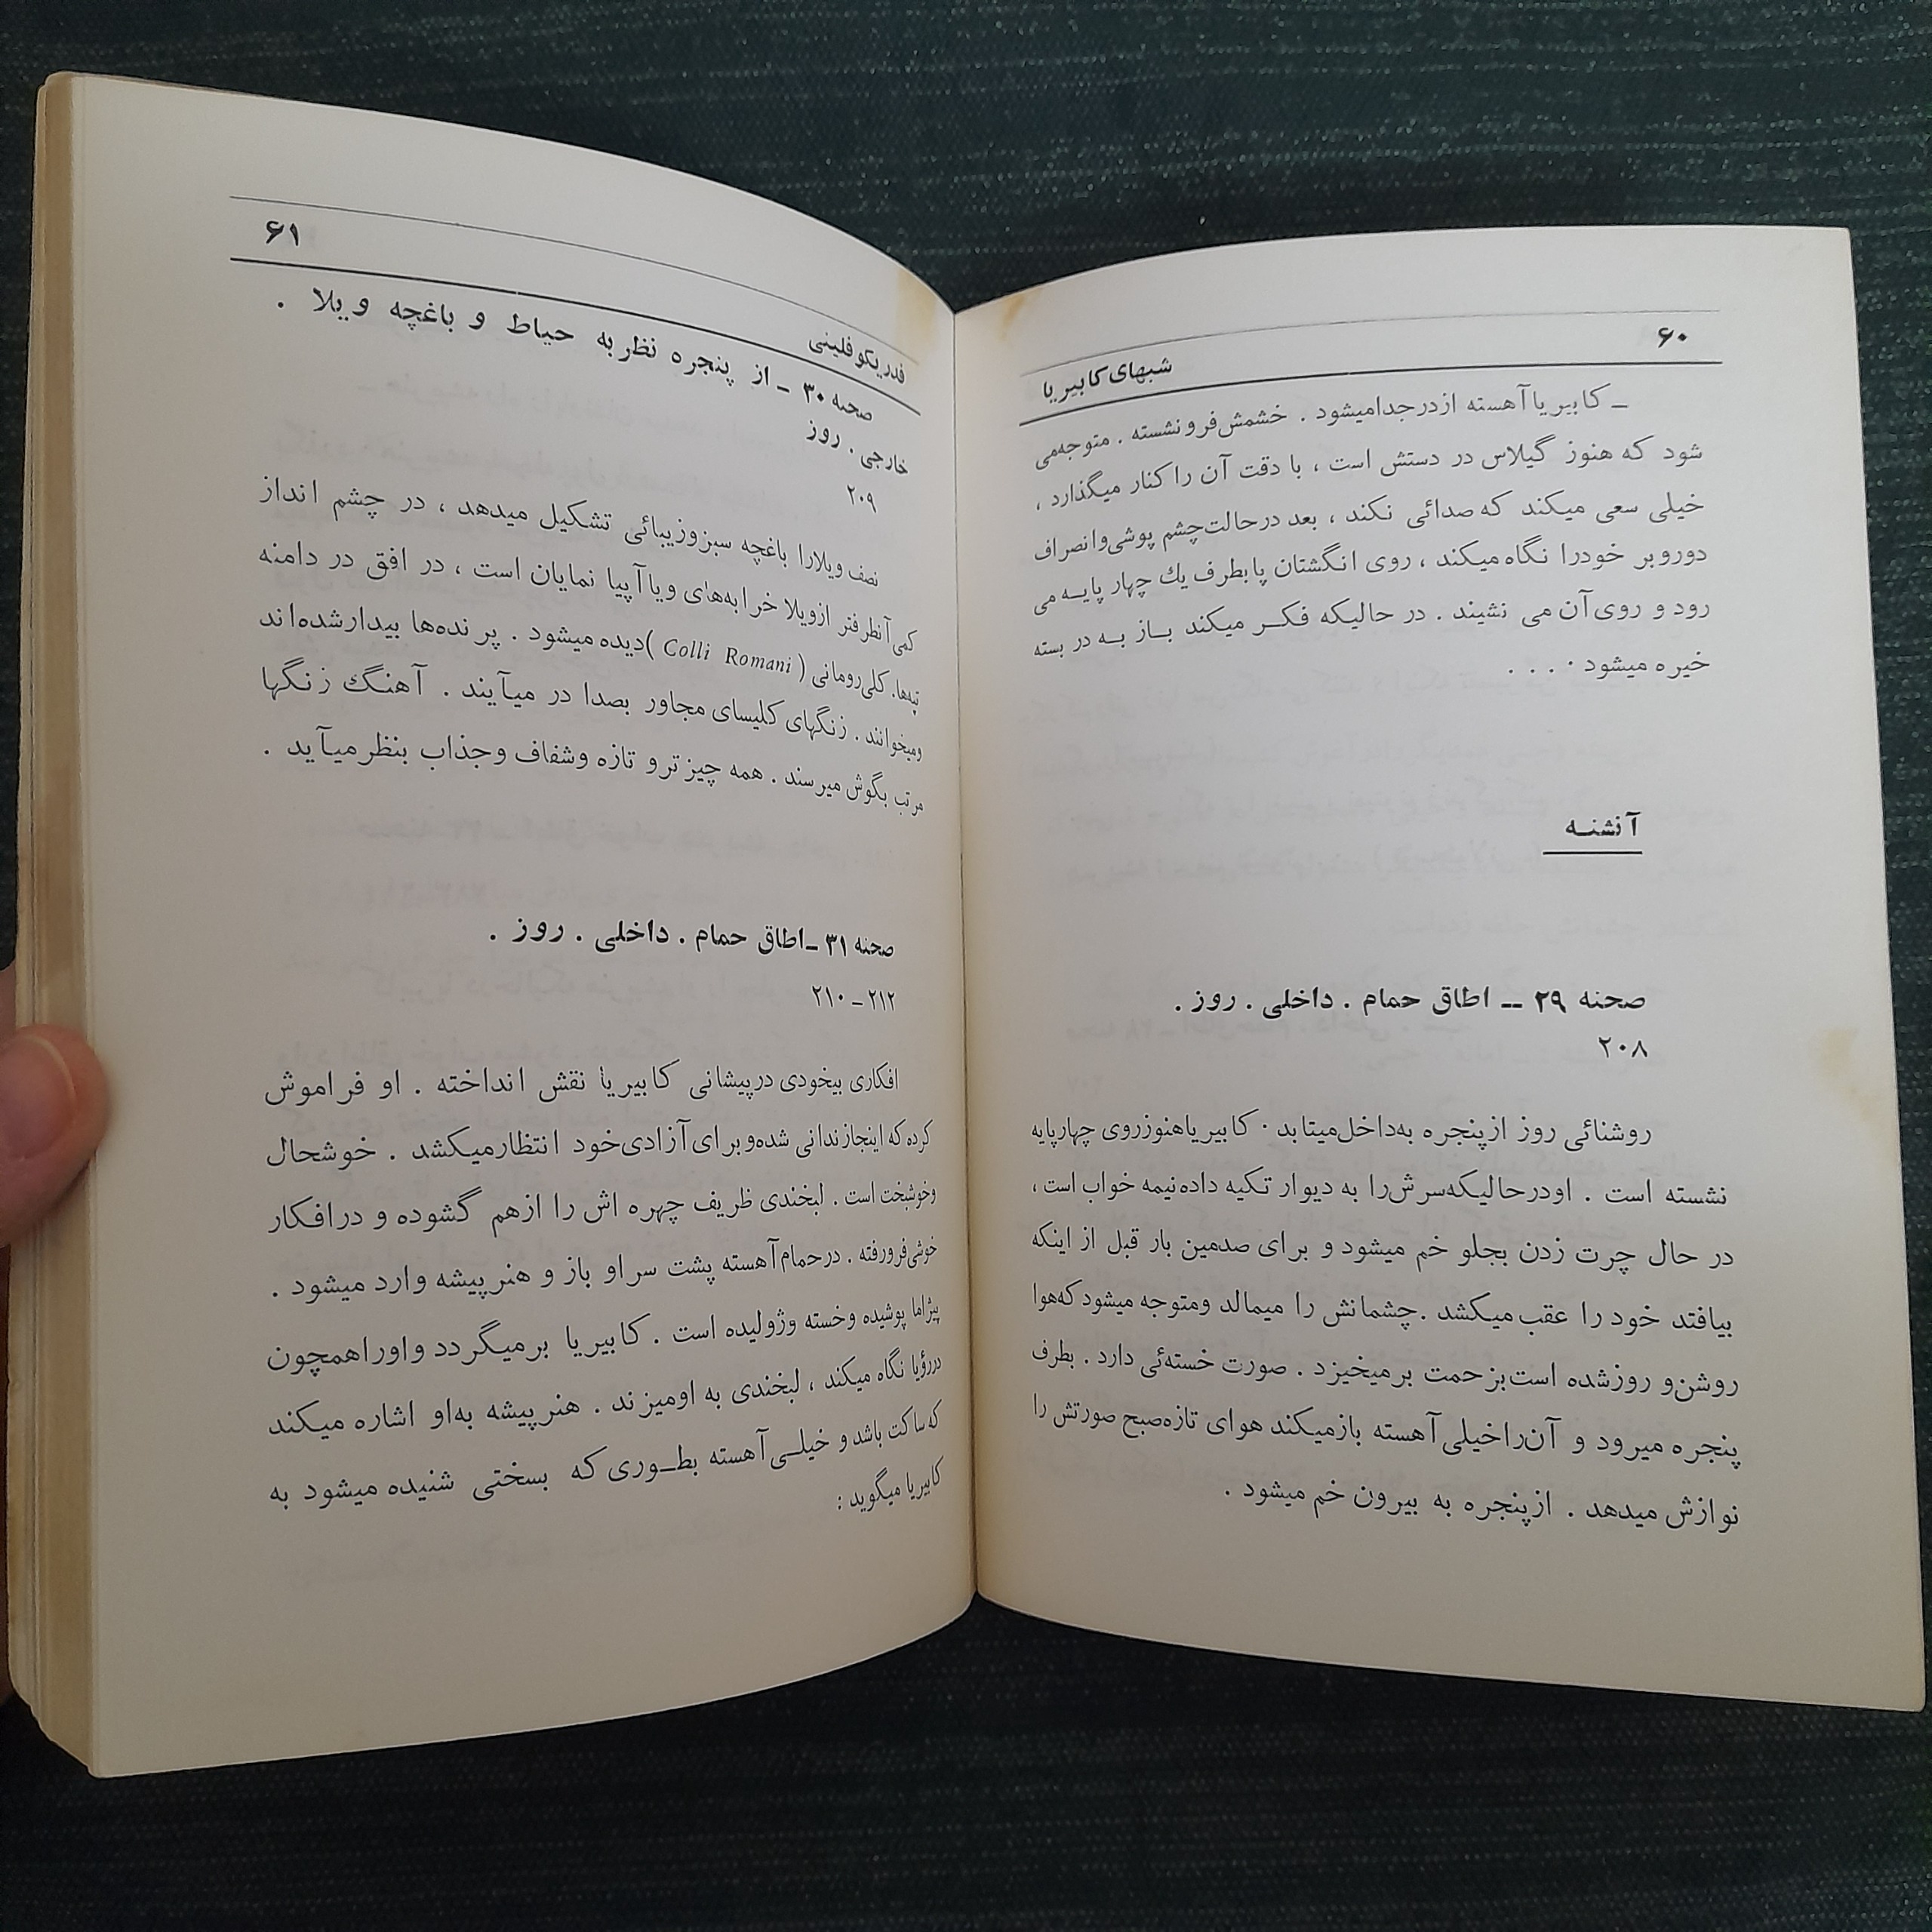 ۶۰
شبهای کابیریا
ــ کابیریا آهسته ازدرجدامیشود . خشمش‌فرونشسته . متوجه‌می
شود که هنوز گیلاس در دستش است ، با دقت آن را کنار میگذارد ،
خیلی سعی میکند که صدائی نکند ، بعد درحالت‌چشم پوشی‌وانصراف
دوروبر خودرا نگاه میکند ، روی انگشتان پابطرف یك چهار پایـه می
رود و روی آن می نشیند . در حالیکه فکـر میکند بـاز بـه در بسته
خیره میشود . . . .
آنشنـه
صحنه ۲۹ ــ اطاق حمام . داخلی . روز .
۲۰۸
روشنائی روز ازپنجره به‌داخل‌میتابد . کابیریاهنوزروی چهارپایه
نشسته است . اودرحالیکه‌سرش‌را به دیوار تکیه داده‌نیمه خواب است ،
در حال چرت زدن بجلو خم میشود و برای صدمین بار قبل از اینکه
بیافتد خود را عقب میکشد . چشمانش را میمالد ومتوجه میشود که‌هوا
روشن‌و روزشده است‌بزحمت برمیخیزد . صورت خسته‌ئی دارد . بطرف
پنجره میرود و آن‌راخیلی‌آهسته بازمیکند هوای تازه‌صبح صورتش را
نوازش میدهد . ازپنجره به بیرون خم میشود .
۶۱
فدریکوفلینی
صحنه ۳۰ ــ از پنجره نظربه حیاط و باغچه ویلا .
خارجی . روز
۲۰۹
نصف ویلارا باغچه سبزوزیبائی تشکیل میدهد ، در چشم انداز
کمی‌آنطرفتر ازویلا خرابه‌های ویاآپیا نمایان است ، در افق در دامنه
تپه‌ها. کلی‌رومانی ( Colli Romani )دیده میشود . پرنده‌ها بیدارشده‌اند
ومیخوانند . زنگهای کلیسای مجاور بصدا در میآیند . آهنگ زنگها
مرتب بگوش میرسند . همه چیز ترو تازه وشفاف وجذاب بنظرمیآید .
صحنه ۳۱ ــ اطاق حمام . داخلی . روز .
۲۱۰ – ۲۱۲
افکاری بیخودی درپیشانی کابیریا نقش انداخته . او فراموش
کرده که اینجازندانی شده‌وبرای‌آزادی‌خود انتظارمیکشد . خوشحال
وخوشبخت است . لبخندی ظریف چهره اش را ازهم گشوده و درافکار
خوشی‌فرورفته . درحمام‌آهسته پشت سراو باز و هنرپیشه وارد میشود .
پیژاما پوشیده وخسته وژولیده است . کابیریا برمیگردد واوراهمچون
دررؤیا نگاه میکند ، لبخندی به اومیزند . هنرپیشه به‌او اشاره میکند
که‌ساکت باشد و خیلـی آهسته بطـوری که بسختی شنیده میشود به
کابیریا میگوید :